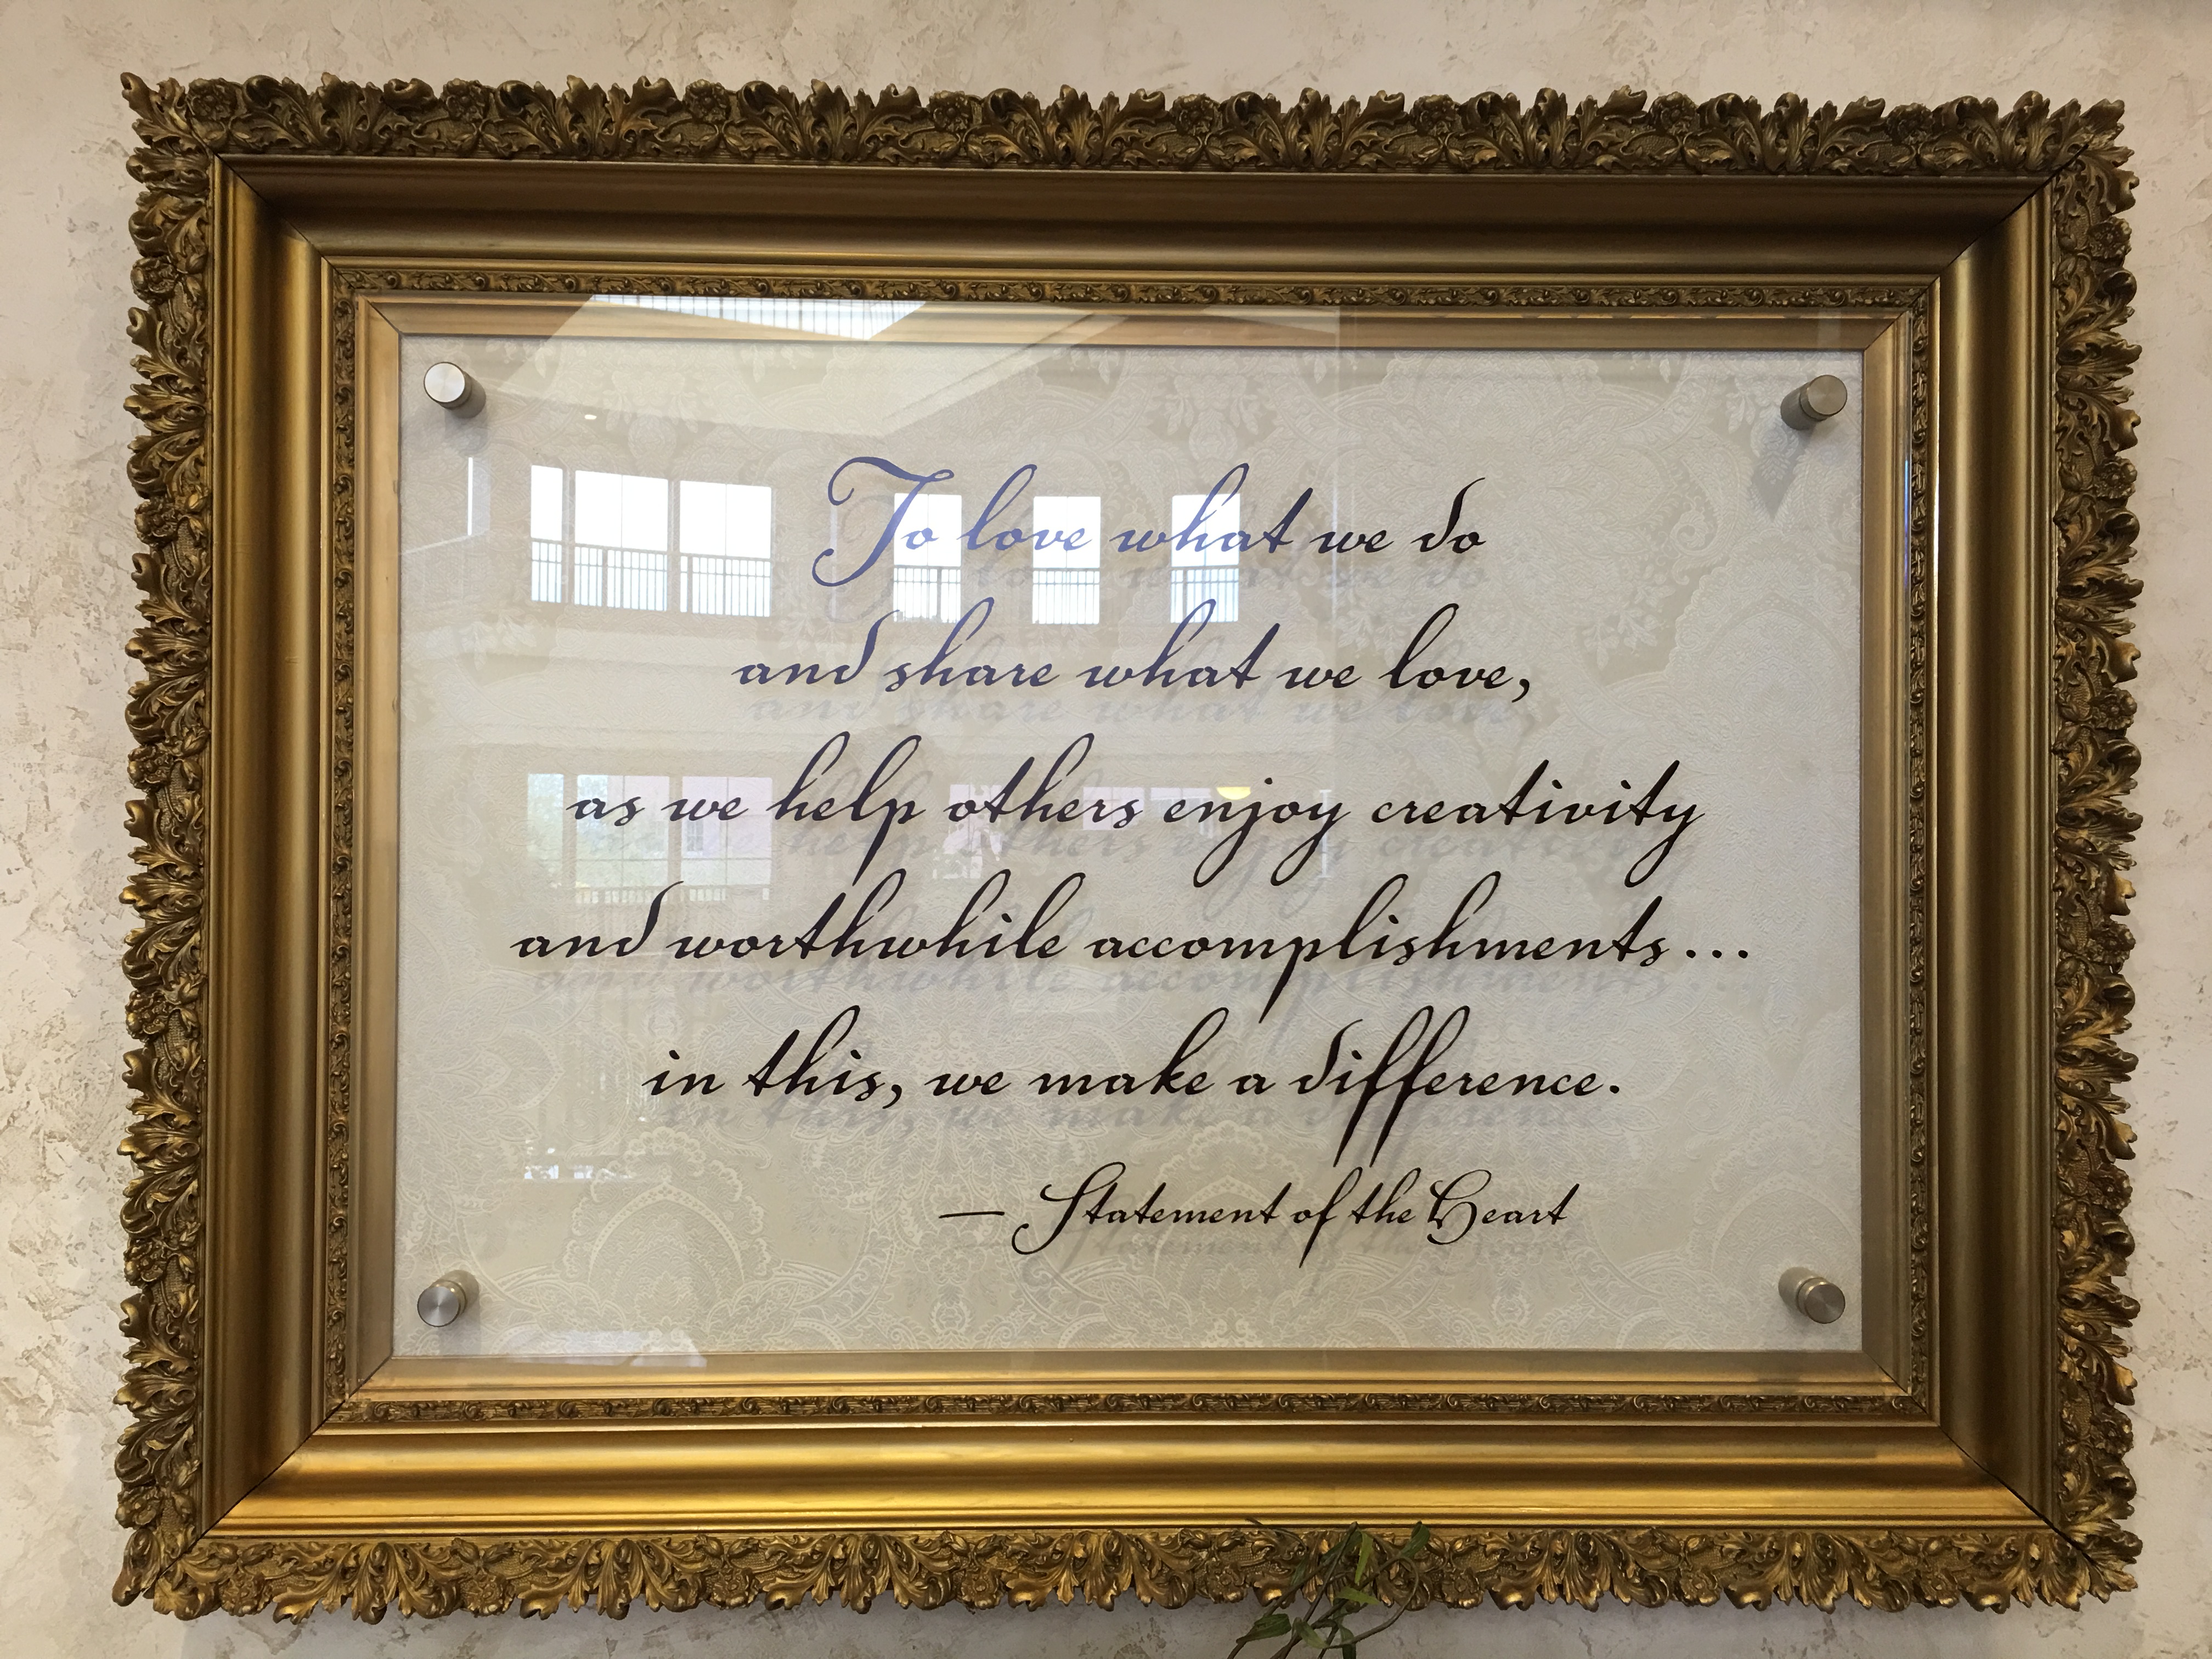 To love what we do
and share what we love,
as we help others enjoy creativity
and worthwhile accomplishments...
in this, we make a difference.
— Statement of the Heart